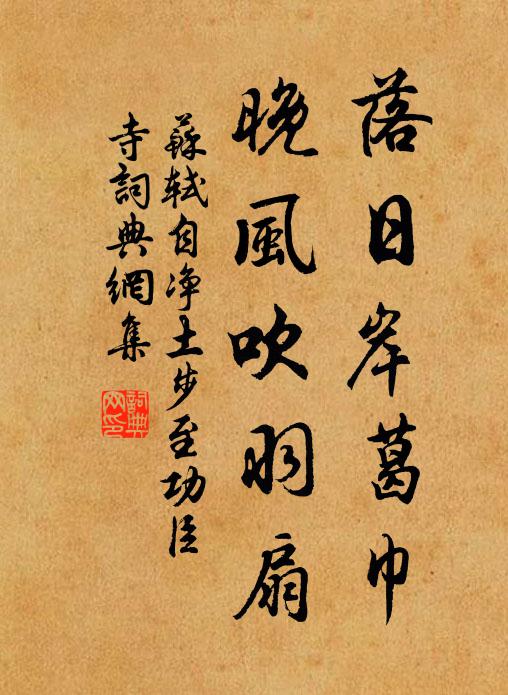 落日岸葛巾
晚風吹羽扇
蘇軾自净土步至功臣
寺詞典網集
詞典
网印